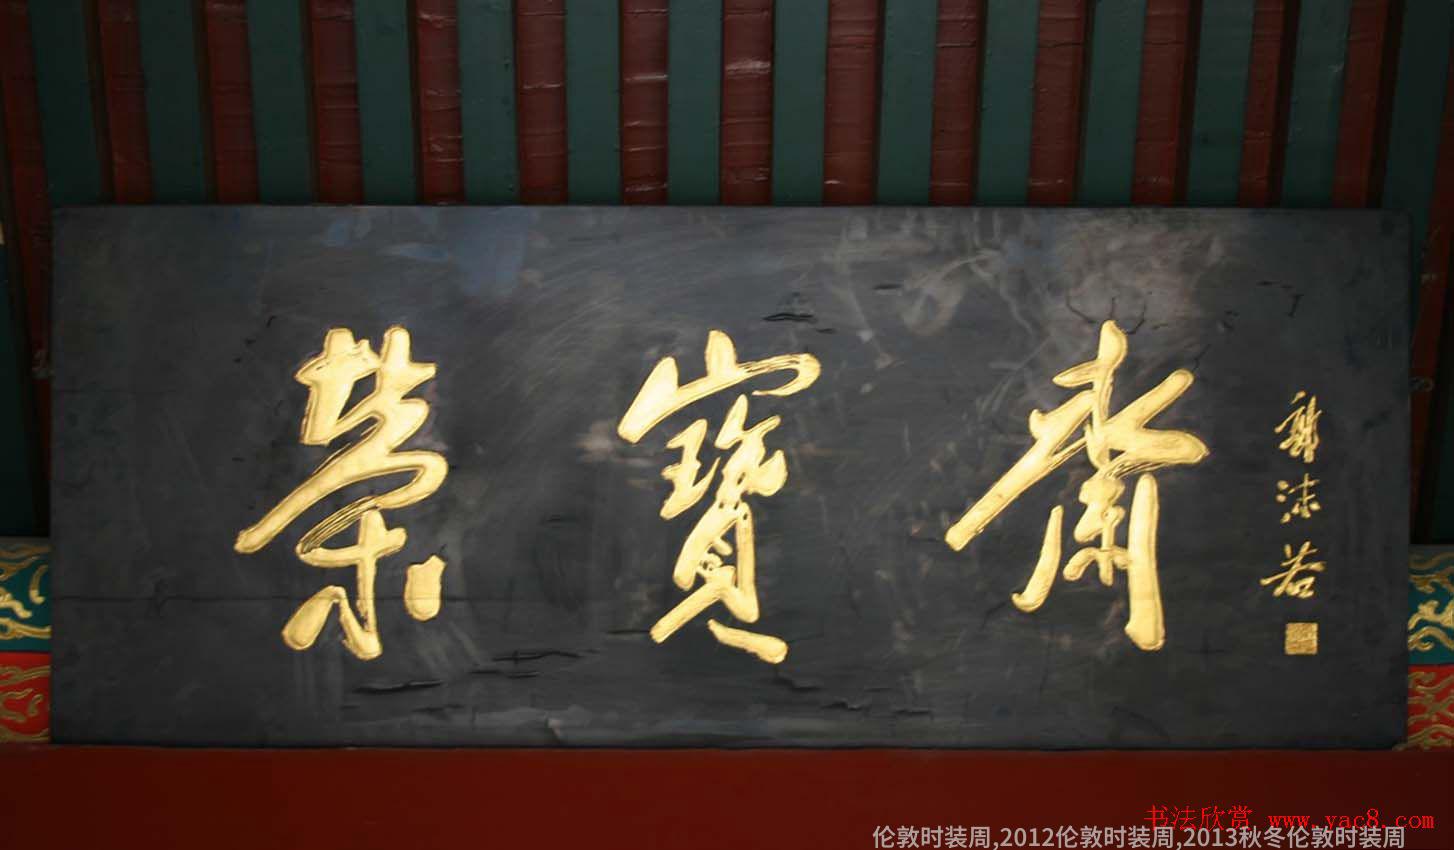 榮寶齋
郭沫若
书法欣赏 www.yac8.com
伦敦时装周,2012伦敦时装周,2013秋冬伦敦时装周